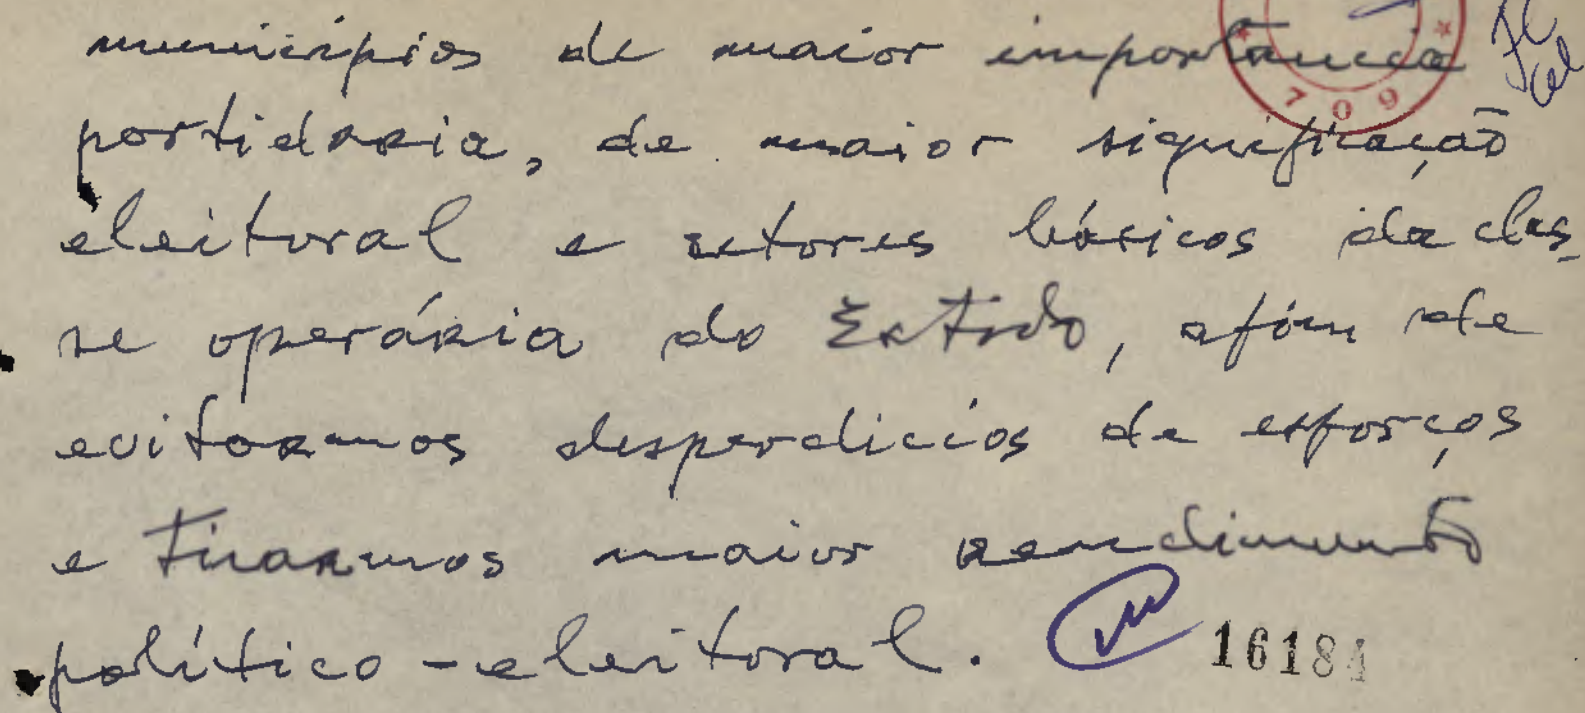 municípios de maior importancia
partidaria, de maior significação
eleitoral e setores básicos da clas-
se operária do Estado, afim de
evitarmos desperdicios de esforços
e tirarmos maior rendimento
político-eleitoral.
709